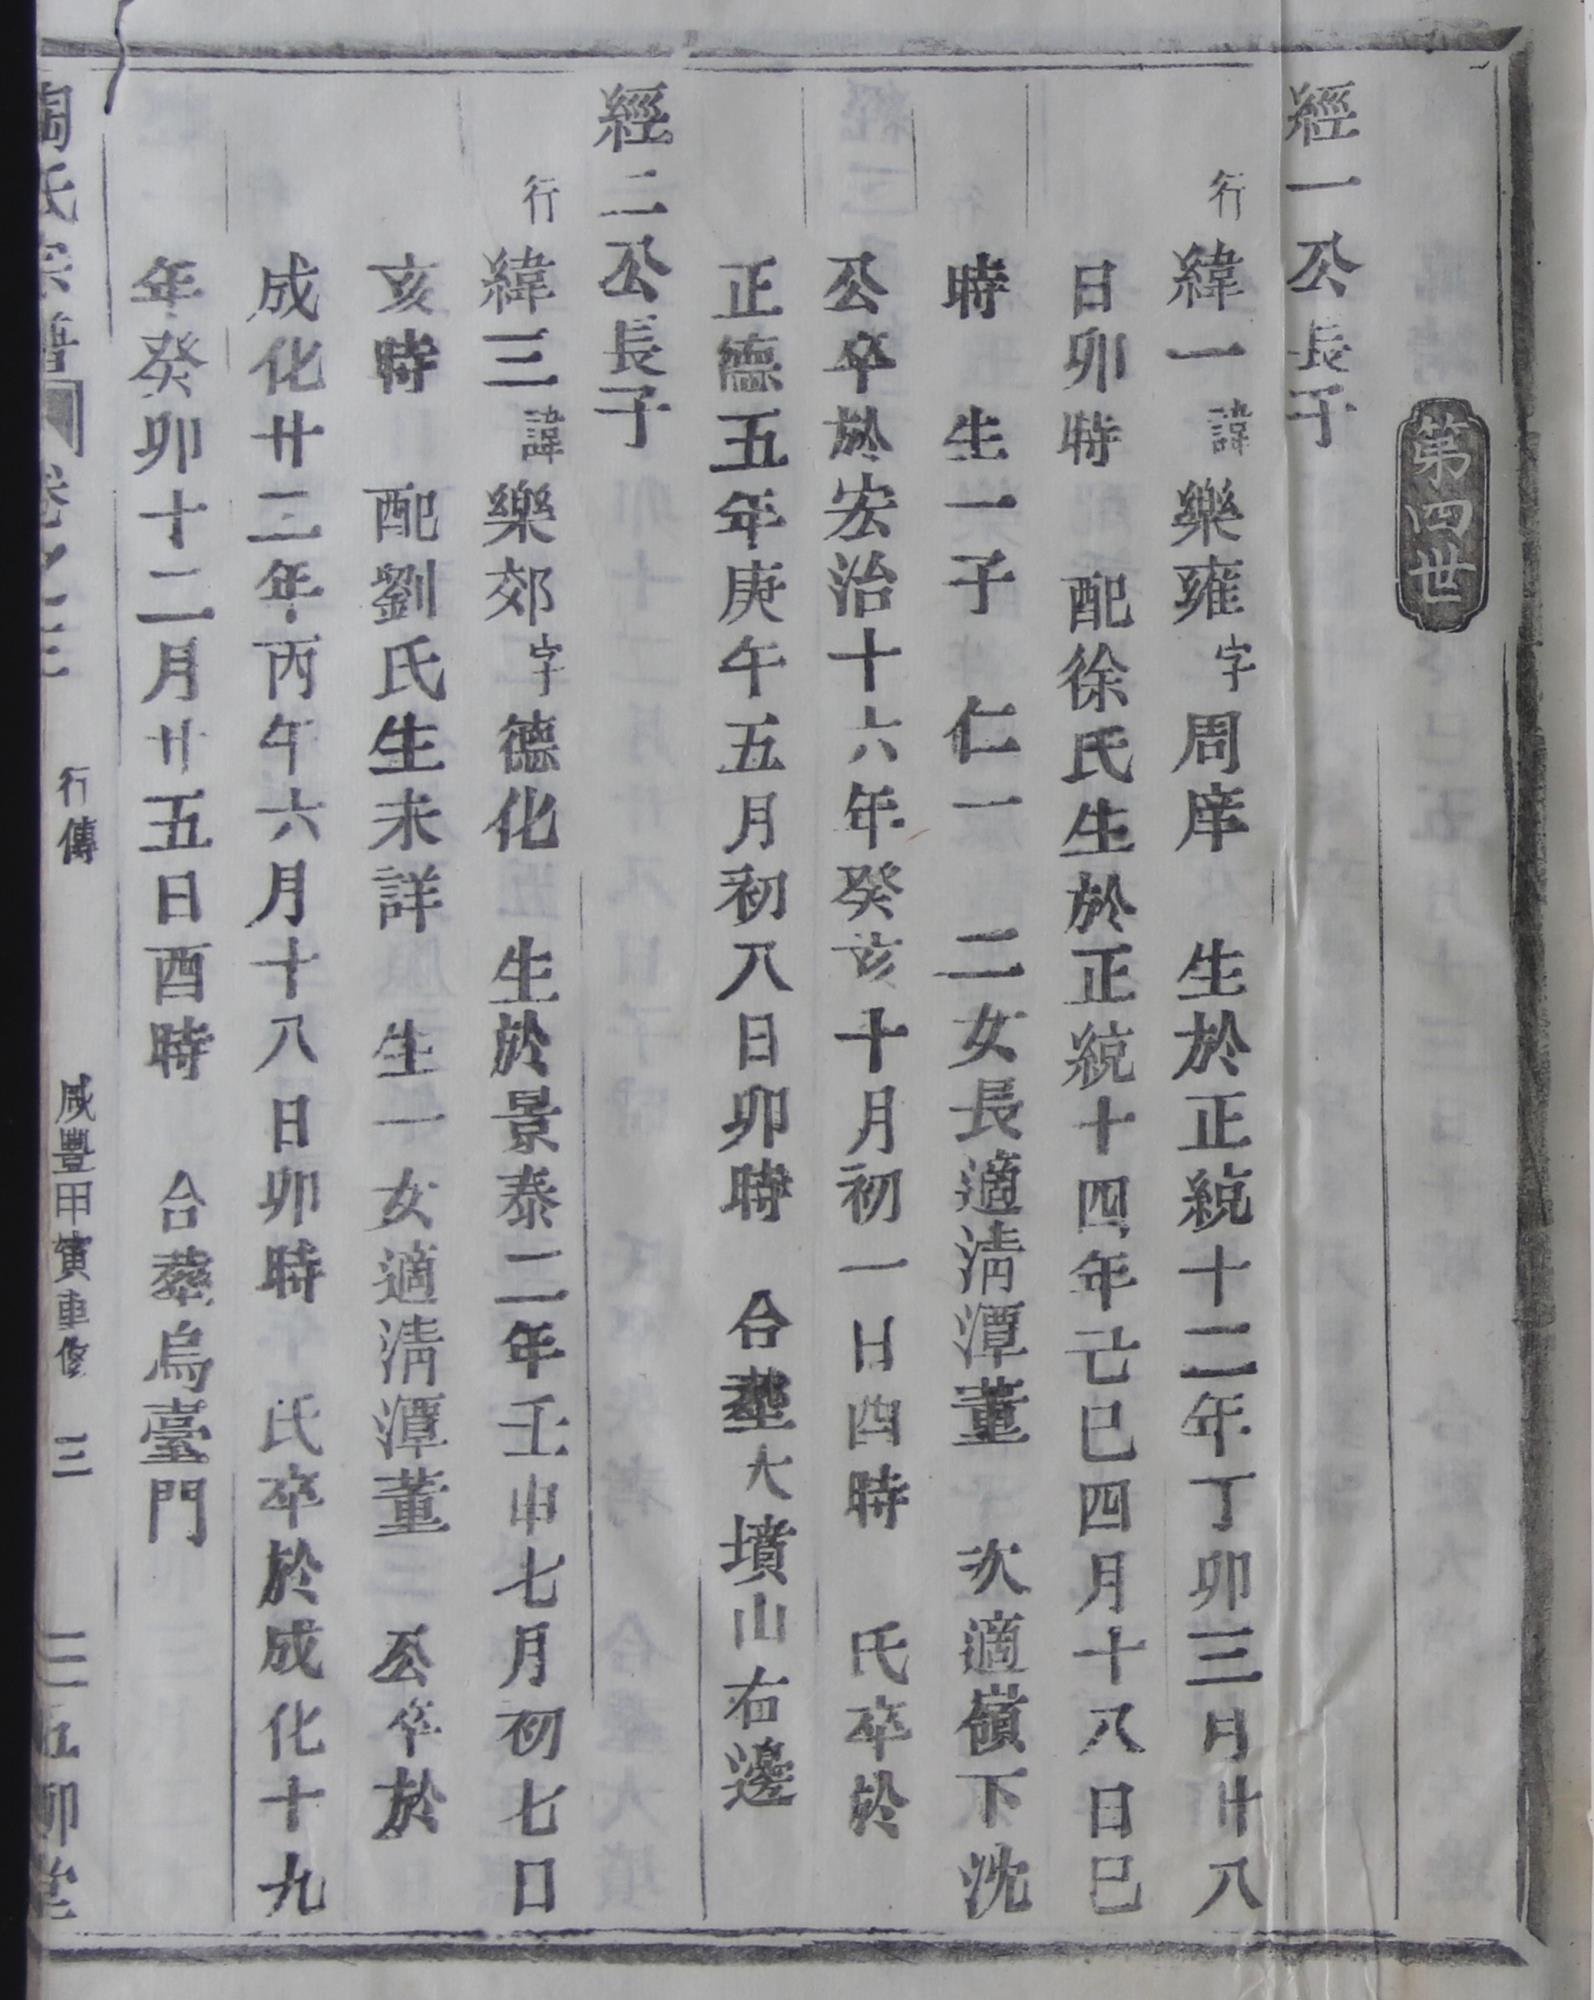 第四世
經一公長子
行緯一諱樂雍字周庠 生於正統十二年丁卯三月廿八
日卯時 配徐氏生於正統十四年己巳四月十八日巳
時 生一子 仁一 二女長適清潭董 次適嶺下沈
公卒於宏治十六年癸亥十月初一日酉時 氏卒於
正德五年庚午五月初八日卯時 合塟大墳山右邊
經二公長子
行緯三諱樂郊字德化 生於景泰二年壬申七月初七日
亥時 配劉氏生未詳 生一女適清潭董 公卒於
成化廿二年丙午六月十八日卯時 氏卒於成化十九
年癸卯十二月廿五日酉時 合葬烏臺門
陶氏宗譜 卷之二 行傳 咸豐甲寅重修 三 五柳堂